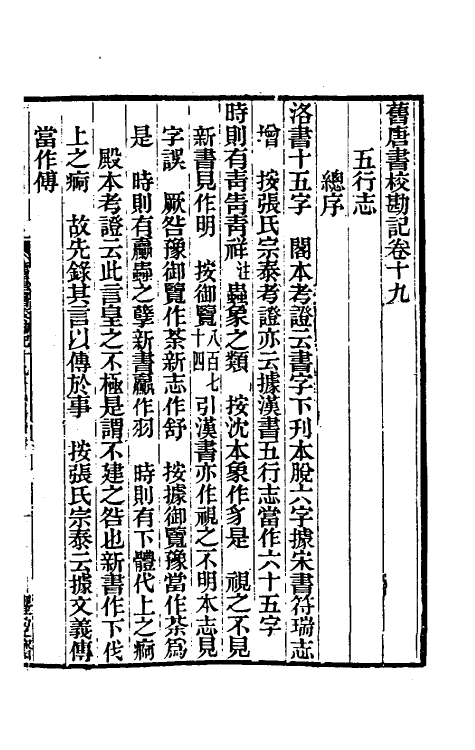 舊唐書校勘記卷十九
五行志
總序
洛書十五字　閣本考證云書字下刊本脫六字據宋書符瑞志
增　按張氏宗泰考證亦云據漢書五行志當作六十五字
時則有青眚青祥注蟲象之類　按沈本象作豸是　視之不見
新書見作明　按御覽八百七十四引漢書亦作視之不明本志見
字誤　厥咎豫御覽作荼新志作舒　按據御覽豫當作荼爲
是　時則有蠃蟲之孽新書蠃作羽　時則有下體代上之痾
殿本考證云此言皇之不極是謂不建之咎也新書作下伐
上之痾　故先錄其言以傳於事　按張氏宗泰云據文義傳
當作傅